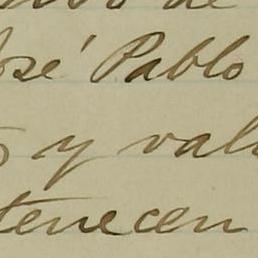 de
José Pablo
y val
tenecen